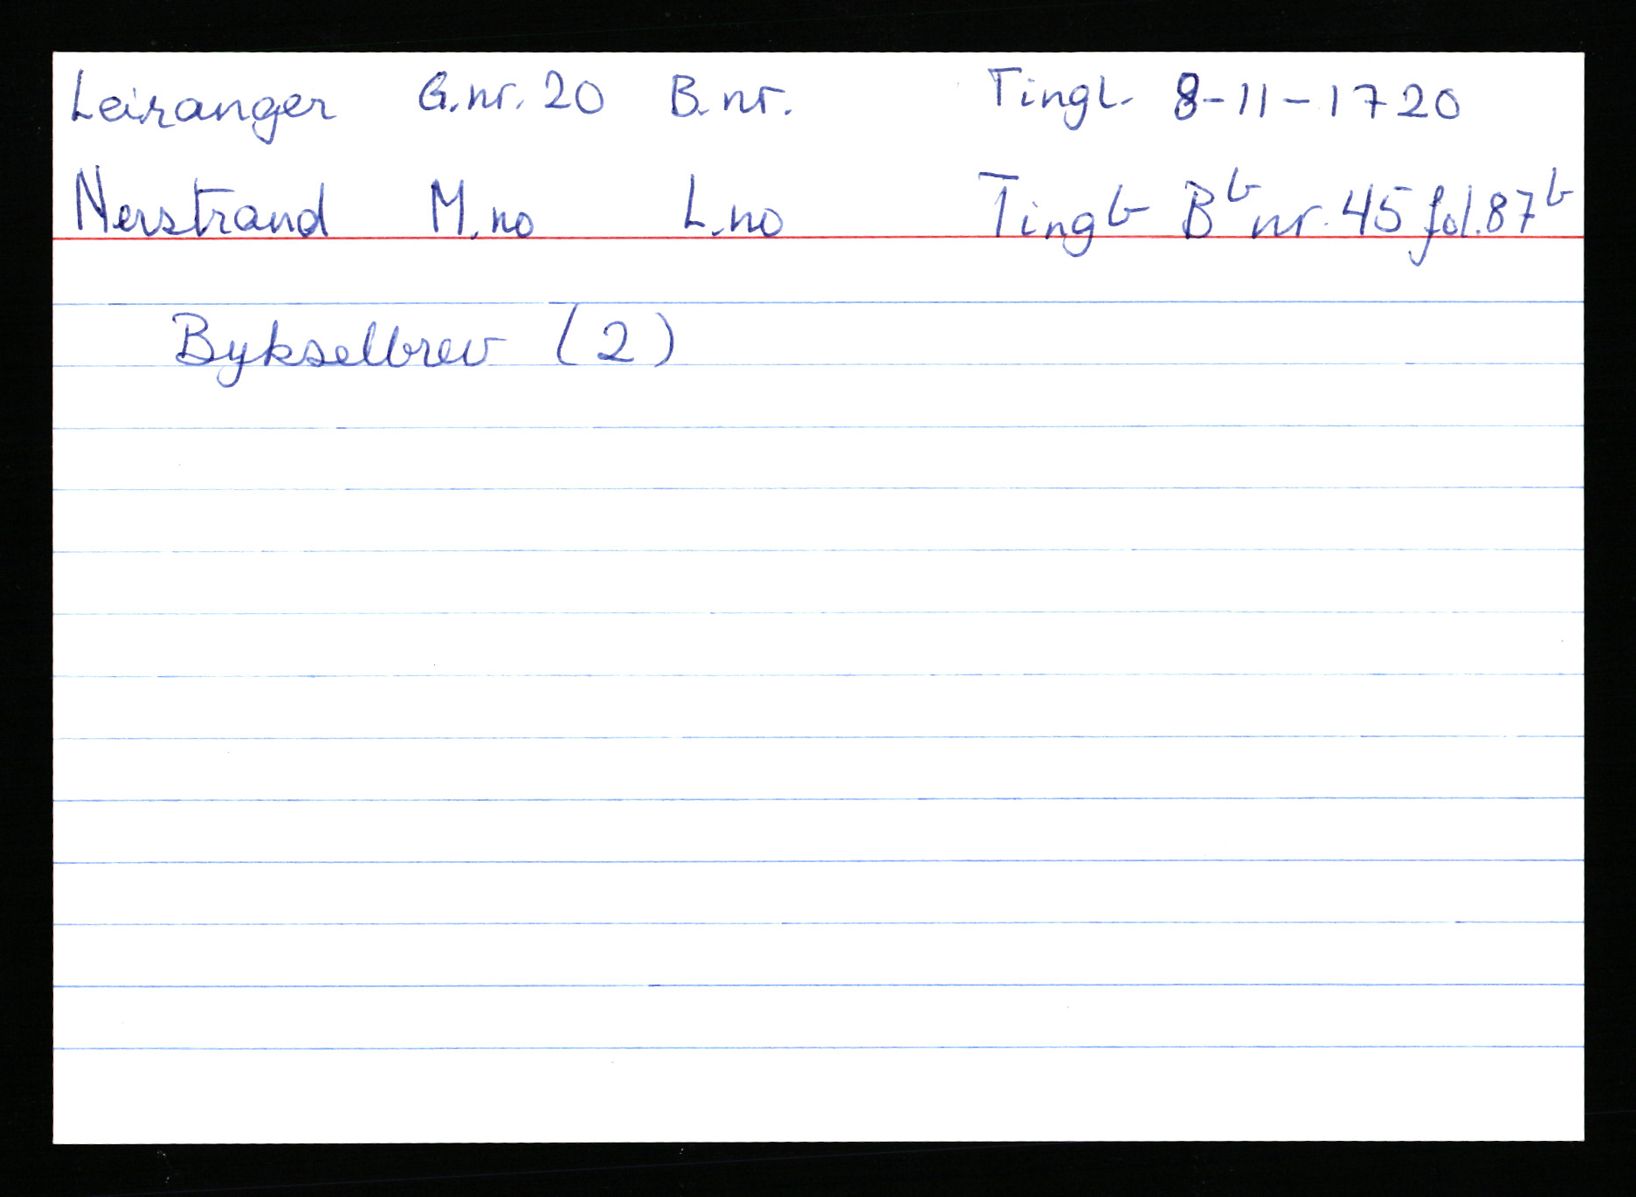 Leiranger G.nr. 20 B.nr. Tingl. 8-11-1720
Nerstrand M.no L.no Tingb Bb nr. 45 fol. 87b
Bykselbrev (2)